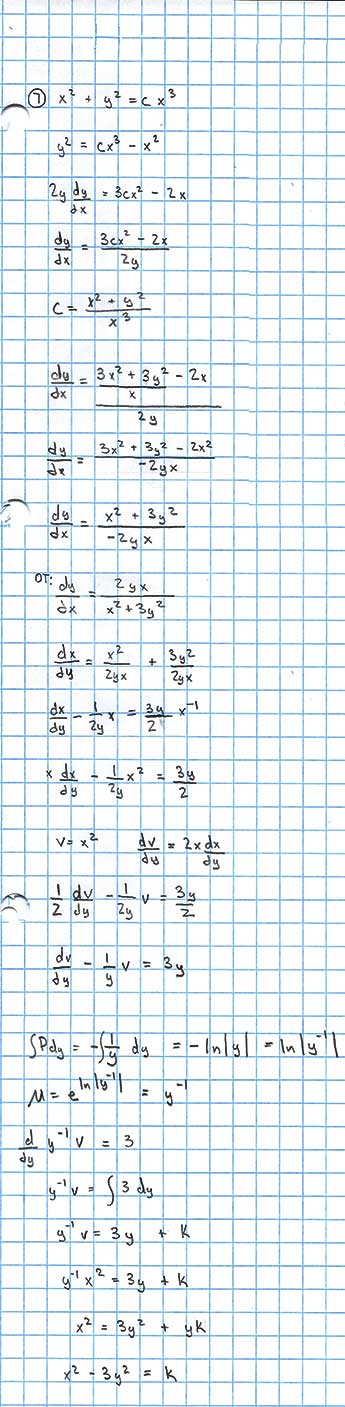 ⑦ x² + y² = c x³
y² = cx³ - x²
2y dy/dx = 3cx² - 2x
dy/dx = (3cx² - 2x)/(2y)
C = (x² + y²)/x³
dy/dx = ((3x² + 3y²)/x - 2x)/(2y)
dy/dx = (3x² + 3y² - 2x²)/(-2yx)
dy/dx = (x² + 3y²)/(-2yx)
OT: dy/dx = 2yx/(x² + 3y²)
dx/dy = x²/(2yx) + 3y²/(2yx)
dx/dy - 1/(2y) x = 3y/2 x⁻¹
x dx/dy - 1/(2y) x² = 3y/2
v = x² dv/dy = 2x dx/dy
1/2 dv/dy - 1/(2y) v = 3y/2
dv/dy - 1/y v = 3y
∫Pdy = -∫1/y dy = -ln|y| = ln|y⁻¹|
μ = e^(ln|y⁻¹|) = y⁻¹
d/dy y⁻¹ v = 3
y⁻¹v = ∫ 3 dy
y⁻¹ v = 3y + k
y⁻¹ x² = 3y + k
x² = 3y² + yk
x² - 3y² = k